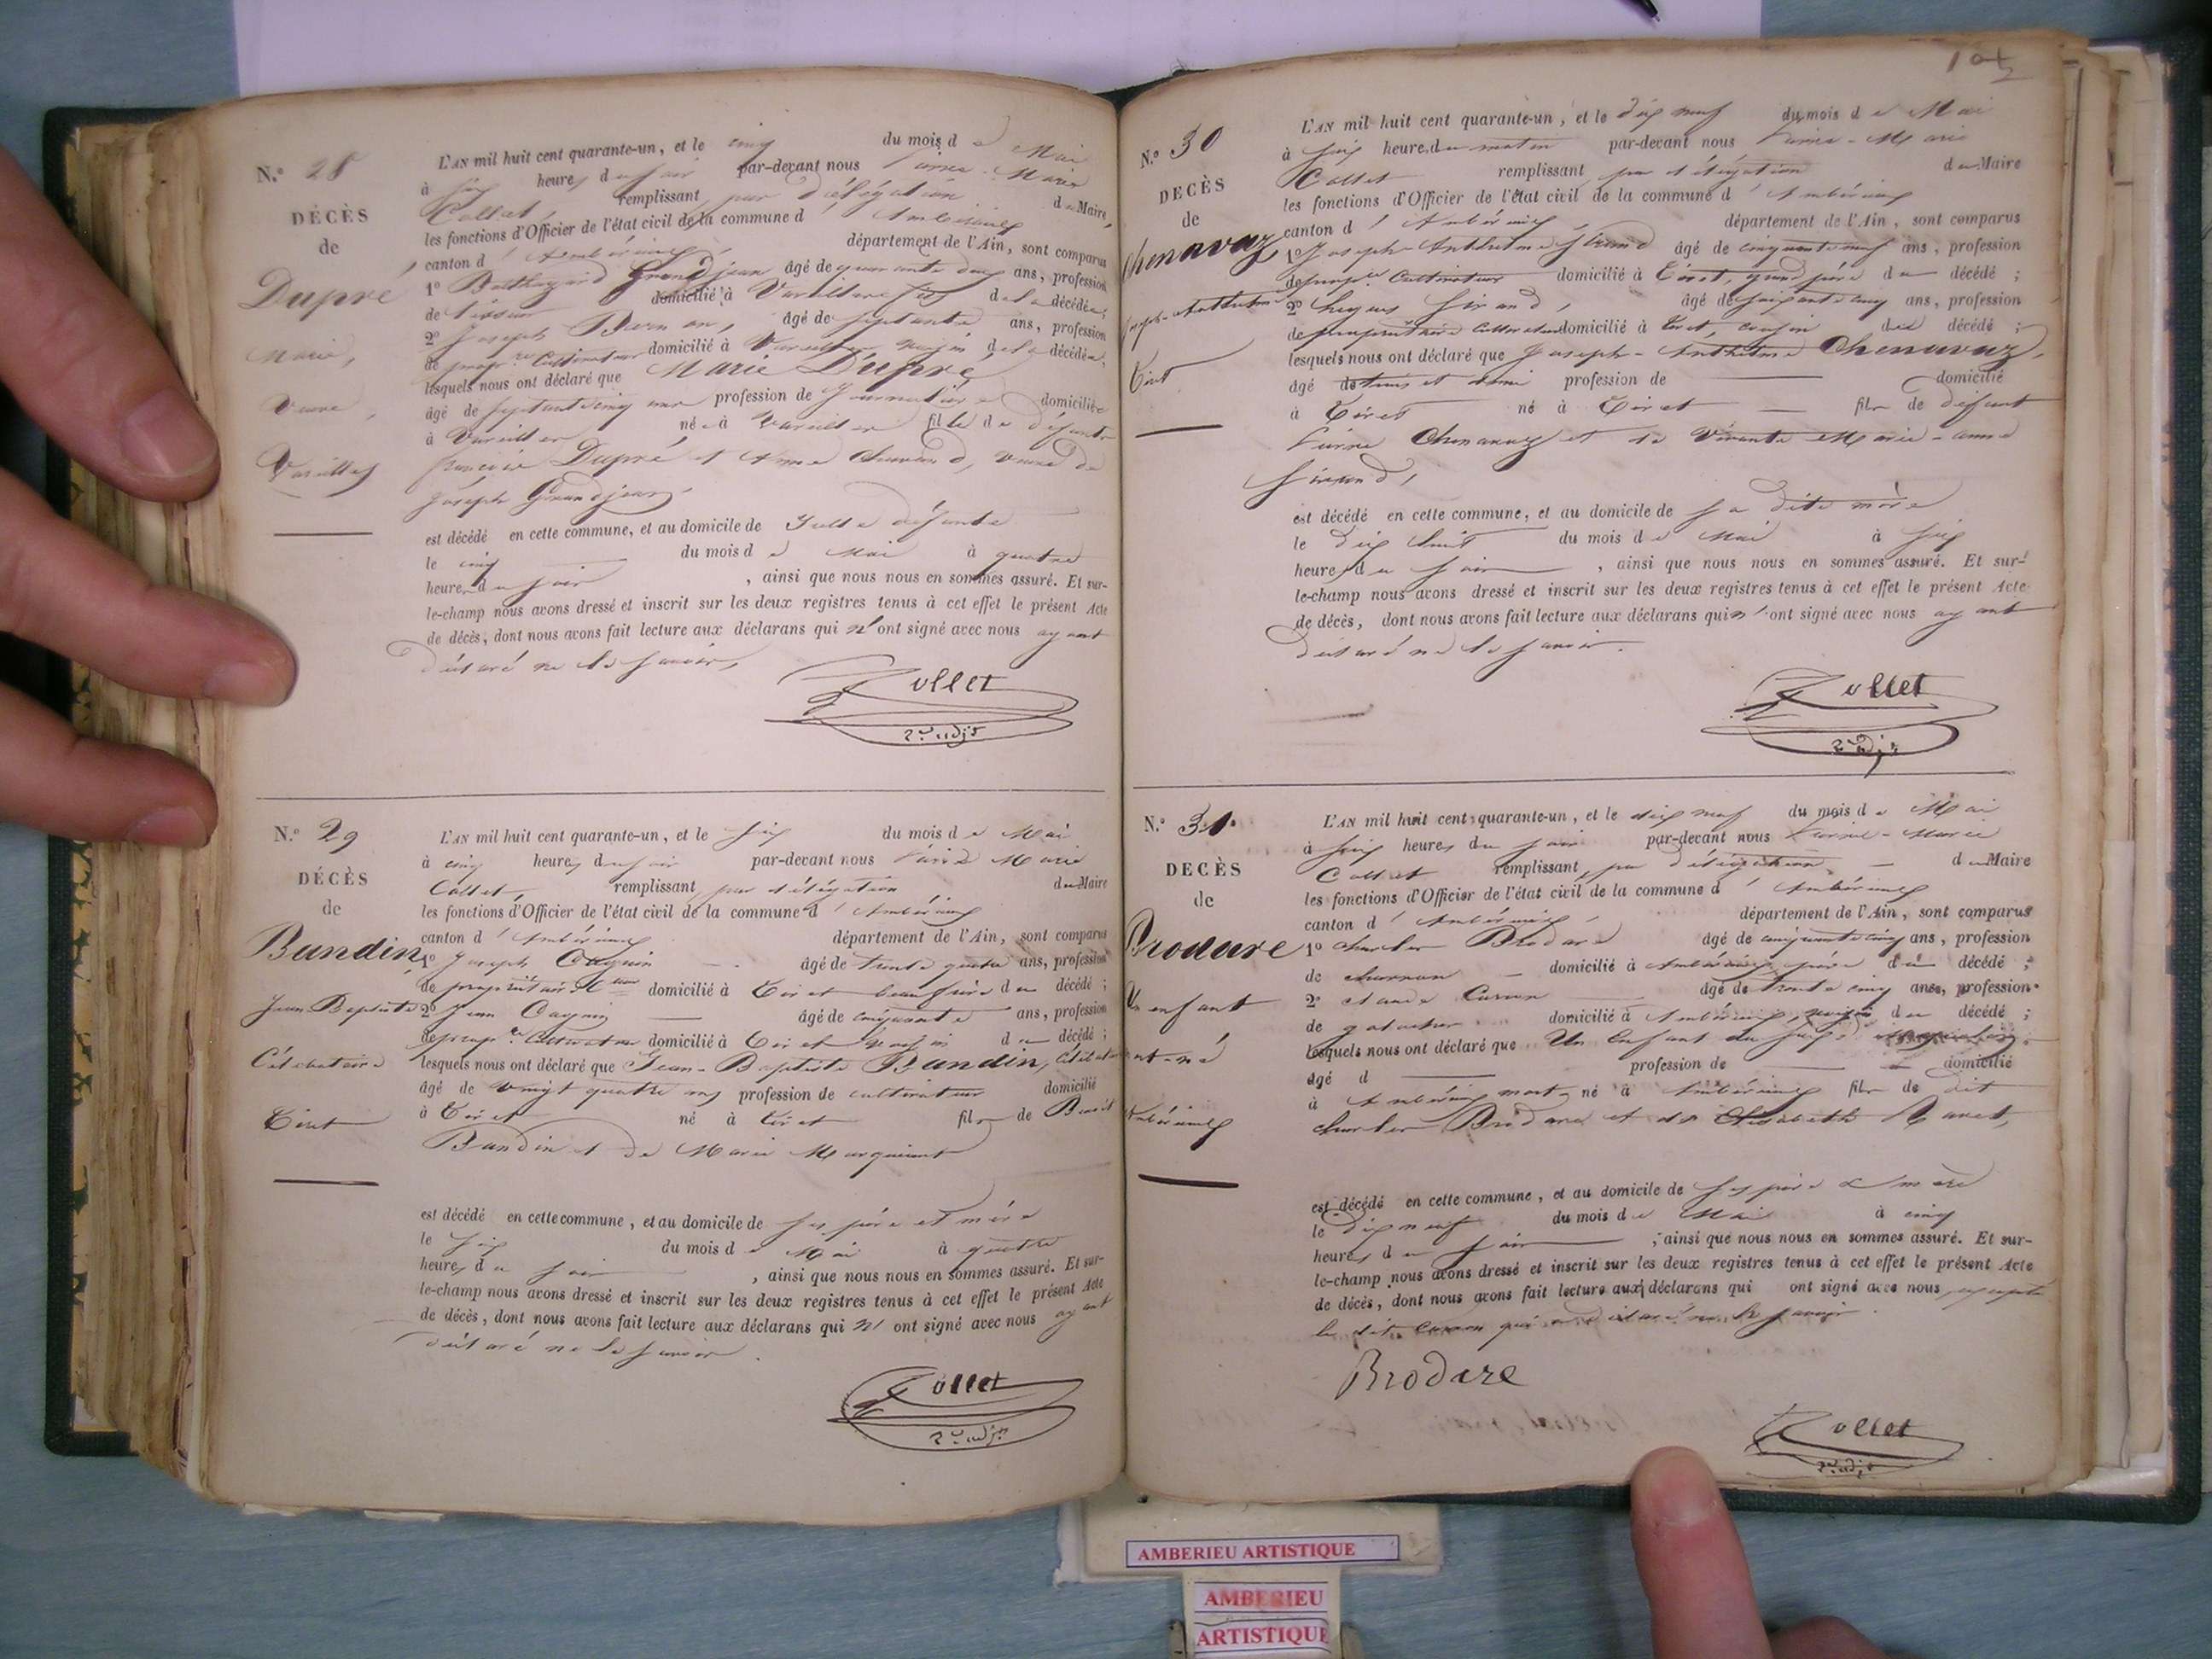 N.° 28
DÉCÈS
de
Dupré
Marie,
Veuve,
Vareilles
L'AN mil huit cent quarante-un, et le cinq du mois de Mai
à six heures du soir par-devant nous Pierre-Marie
Collet, remplissant par délégation du Maire,
les fonctions d'Officier de l'état civil de la commune d'Ambérieux
canton d'Ambérieux, département de l'Ain, sont comparus
1° Balthazard Grandjean âgé de quarante deux ans, profession
de domicilié à Vareilles fils de la décédée;
2° Joseph âgé de septante ans, profession
de propre. Cultivateur domicilié à Vareilles voisin de la décédée;
lesquels nous ont déclaré que Marie Dupré,
âgé de septante cinq ans profession de Journalière domiciliée
à Vareilles née à Vareilles fille de défunts
françois Dupré et Anne veuve de
Joseph Grandjean,
est décédé en cette commune, et au domicile de défunte
le cinq du mois de Mai à quatre
heures du soir, ainsi que nous nous en sommes assuré. Et sur-
le-champ nous avons dressé et inscrit sur les deux registres tenus à cet effet le présent Acte
de décès, dont nous avons fait lecture aux déclarans qui n'ont signé avec nous ayant
déclaré ne le savoir,
Collet
2e adjt
N.° 29
DÉCÈS
de
Bandin,
Jean Baptiste
Célibataire
Tiret
L'AN mil huit cent quarante-un, et le six du mois de Mai
à cinq heures du soir par-devant nous Pierre Marie
Collet, remplissant par délégation du Maire
les fonctions d'Officier de l'état civil de la commune d'Ambérieux
canton d'Ambérieux département de l'Ain, sont comparus
1° Joseph Cagnin âgé de trente quatre ans, profession
de propriétaire domicilié à Tiret beau frère du décédé;
2° Jean Cagnin âgé de cinquante ans, profession
de propre. Cultivateur domicilié à Tiret voisin du décédé;
lesquels nous ont déclaré que Jean-Baptiste Bandin, célibataire
âgé de vingt quatre ans profession de cultivateur domicilié
à Tiret né à Tiret fils de Benoit
Bandin et de Marie
est décédé en cette commune, et au domicile de ses père et mère
le six du mois de Mai à quatre
heures du soir, ainsi que nous nous en sommes assuré. Et sur-
le-champ nous avons dressé et inscrit sur les deux registres tenus à cet effet le présent Acte
de décès, dont nous avons fait lecture aux déclarans qui n'ont signé avec nous ayant
déclaré ne le savoir.
Collet
2e adjt
N.° 30
DÉCÈS
de
Chenavaz
Joseph-Anthelme
Tiret
L'AN mil huit cent quarante-un, et le dix neuf du mois de Mai
à six heures du matin par-devant nous Pierre-Marie
Collet remplissant par délégation du Maire
les fonctions d'Officier de l'état civil de la commune d'Ambérieux
canton d'Ambérieux, département de l'Ain, sont comparus
1° Joseph Anthelme Sirand âgé de cinquante neuf ans, profession
de propre. Cultivateur domicilié à Tiret, grand père du décédé;
2° Sirand, âgé de soixante cinq ans, profession
de propriétaire cultivateur domicilié à Tiret, cousin du décédé;
lesquels nous ont déclaré que Joseph-Anthelme Chenavaz,
âgé de trois et demi profession de domicilié
à Tiret né à Tiret fils de défunt
Pierre Chenavaz et de vivante Marie-anne
Sirand,
est décédé en cette commune, et au domicile de sa dite mère
le dix huit du mois de Mai à six
heures du soir, ainsi que nous nous en sommes assuré. Et sur-
le-champ nous avons dressé et inscrit sur les deux registres tenus à cet effet le présent Acte
de décès, dont nous avons fait lecture aux déclarans qui n'ont signé avec nous ayant
déclaré ne le savoir.
Collet
2e adjt
N.° 31.
DÉCÈS
de
Brodare
Un enfant
mort-né
Ambérieux
L'AN mil huit cent quarante-un, et le dix neuf du mois de Mai
à six heures du soir par-devant nous Pierre-Marie
Collet remplissant par délégation du Maire
les fonctions d'Officier de l'état civil de la commune d'Ambérieux
canton d'Ambérieux, département de l'Ain, sont comparus
1° Charles Brodare âgé de cinquante cinq ans, profession
de charron domicilié à Ambérieux père du décédé;
2° Claude Curon âgé de trente cinq ans, profession
de domicilié à Ambérieux, voisin du décédé;
lesquels nous ont déclaré que Un Enfant du sexe
âgé d profession de domicilié
à Ambérieux mort-né à Ambérieux fils de dit
Charles Brodare et de Elisabeth
est décédé en cette commune, et au domicile de ses père & mère
le dix neuf du mois de Mai à cinq
heures du soir, ainsi que nous nous en sommes assuré. Et sur-
le-champ nous avons dressé et inscrit sur les deux registres tenus à cet effet le présent Acte
de décès, dont nous avons fait lecture aux déclarans qui ont signé avec nous, excepté
le dit Curon qui a déclaré ne le savoir.
Brodare
Collet
2e adjt
AMBERIEU ARTISTIQUE
AMBERIEU
ARTISTIQUE